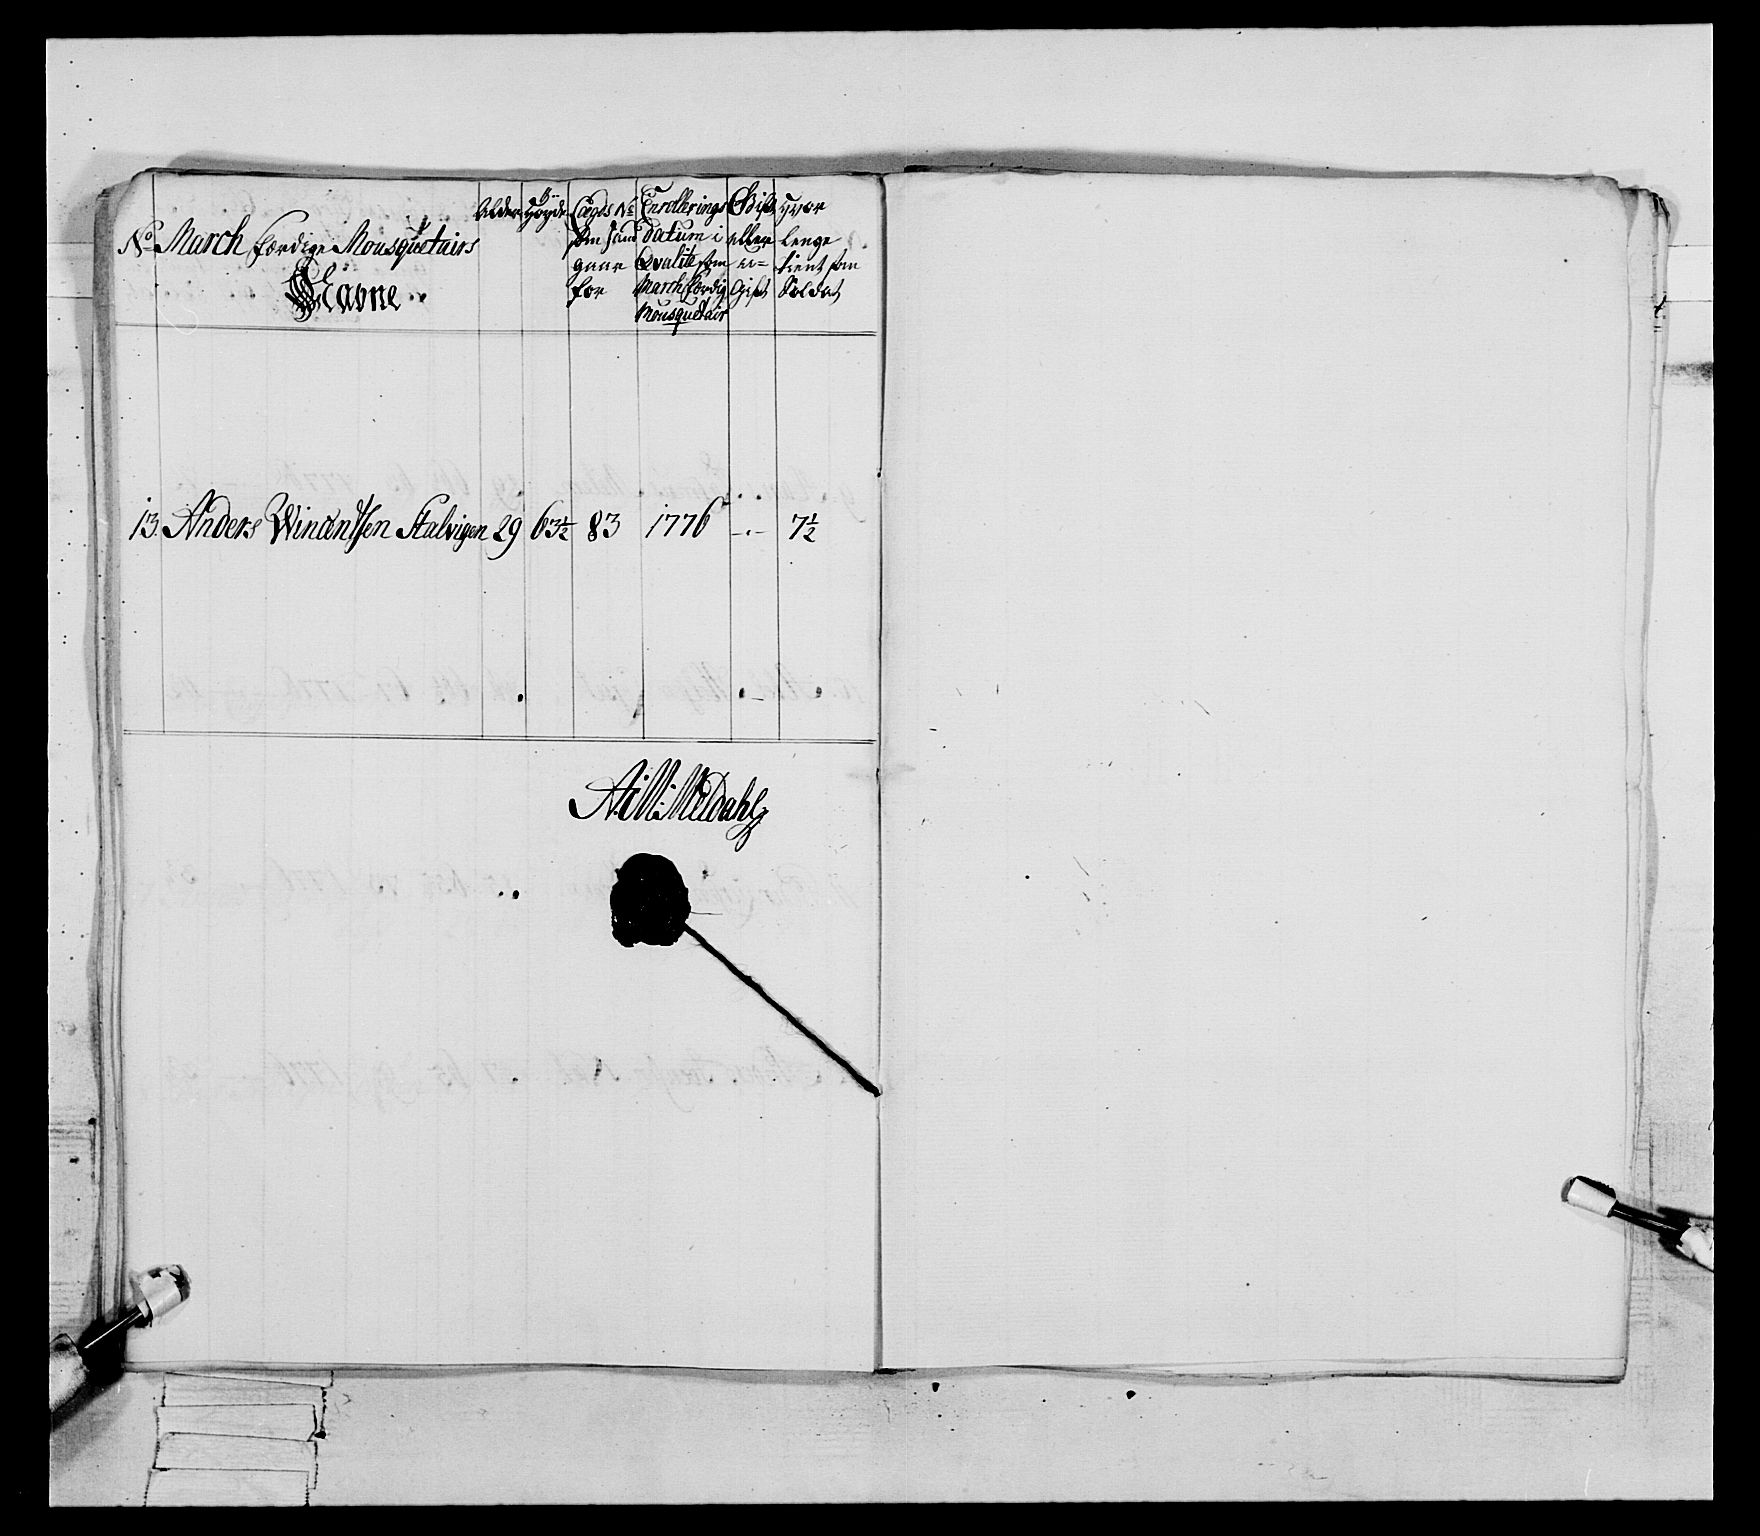 No March færdige Mousquetairs Navne
Alder
Høyde
Lægds No som hand gaar for
Enrollerings datum i Qvalite som March færdig Mousquetair
Gift eller u= Gift
Hvor lenge tient som Soldat
13. Anders Vincentsen Stalvigen 29 63½ 83 1776 -.- 7½
Meldahl